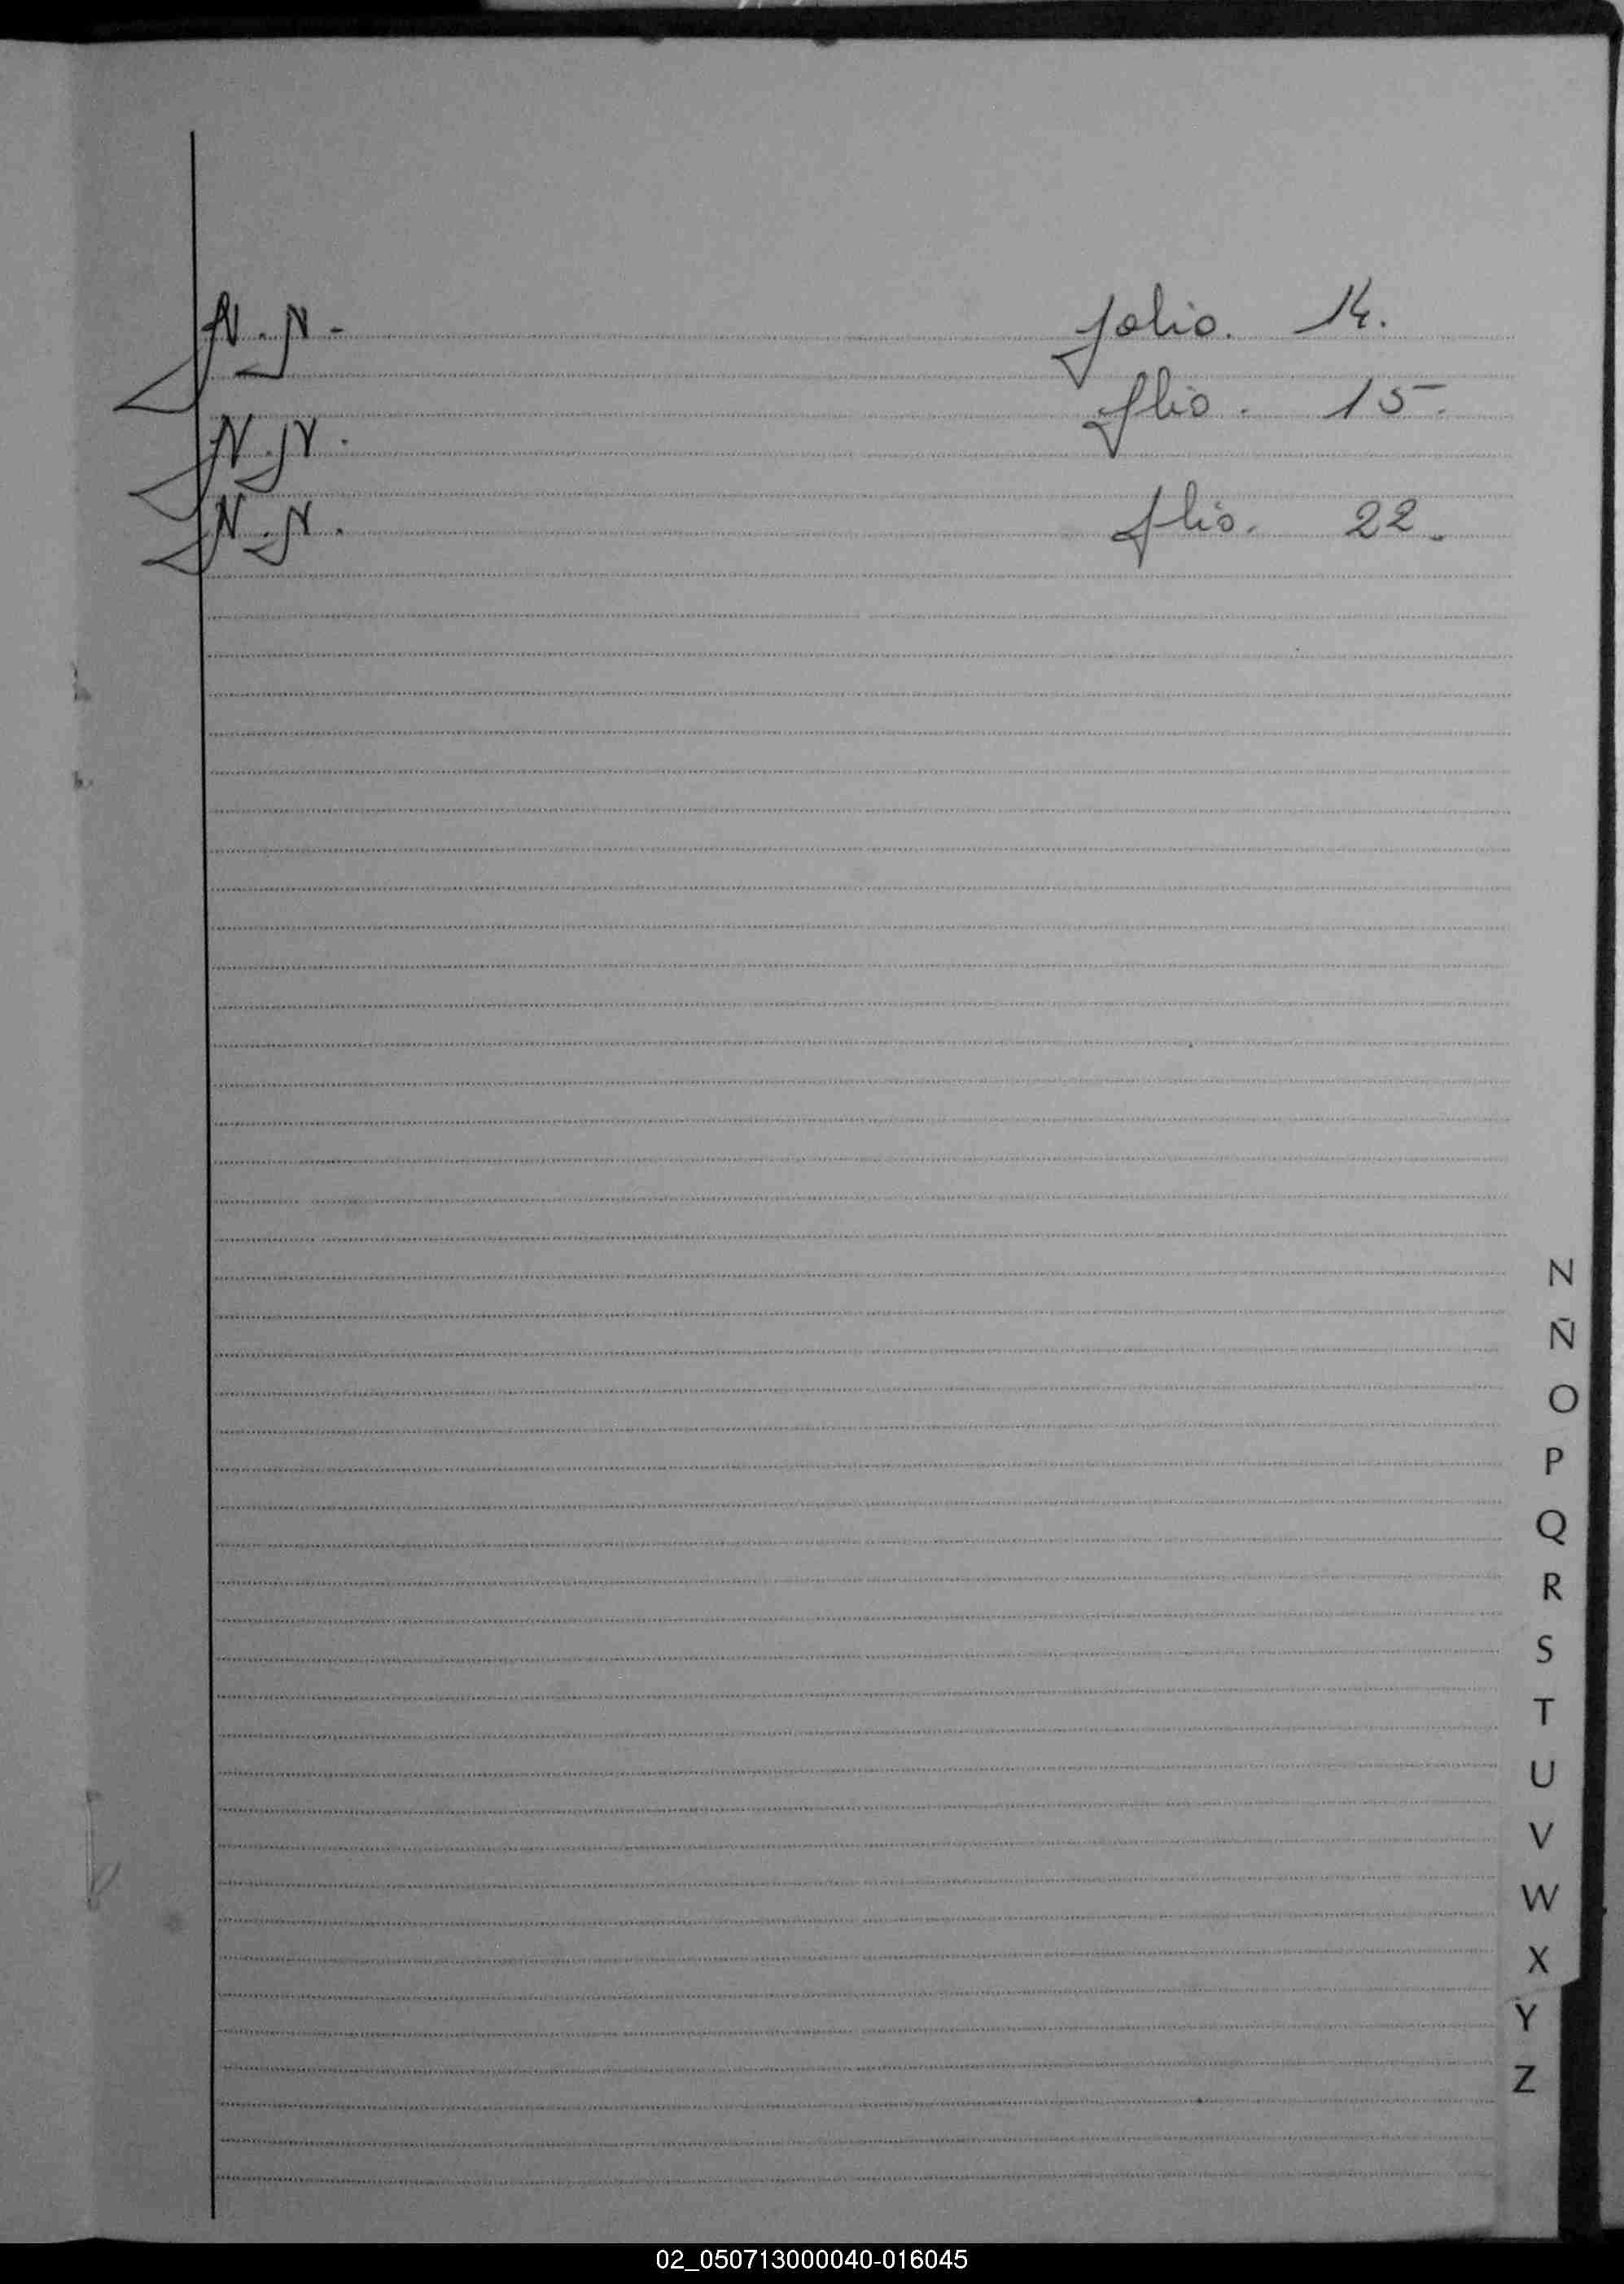 N. N - folio. 14.
flio. 15.
N. N.
N. N. flio. 22.
N
Ñ
O
P
Q
R
S
T
U
V
W
X
Y
Z
02_050713000040-016045